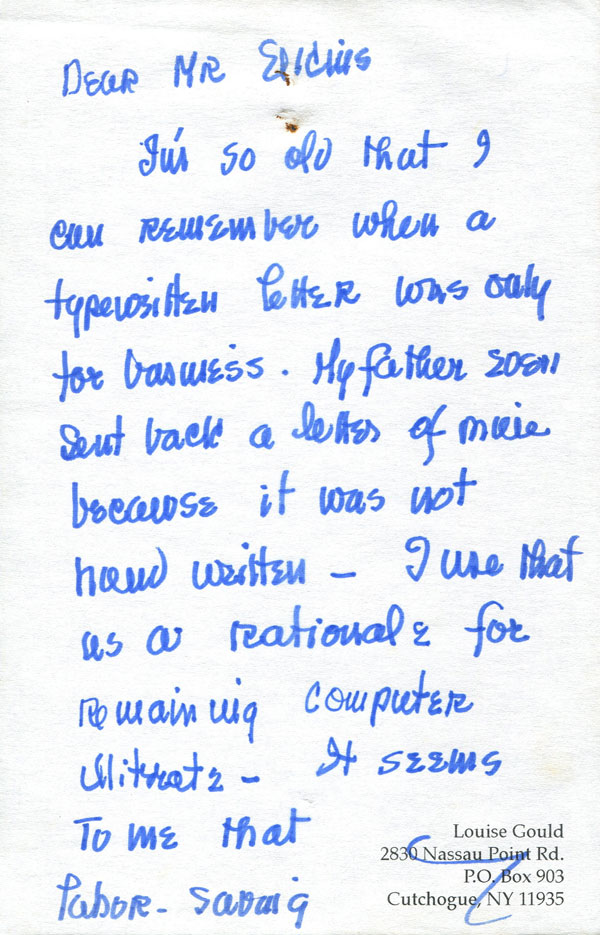 Dear Mr
I'm so old that I
can remember when a
typewritten letter was only
for business. My father even
sent back a letter of mine
because it was not
hand written – I use that
as a rationale for
remaining computer
illitrate – It seems
To me that
labor-saving
Louise Gould
2830 Nassau Point Rd.
P.O. Box 903
Cutchogue, NY 11935